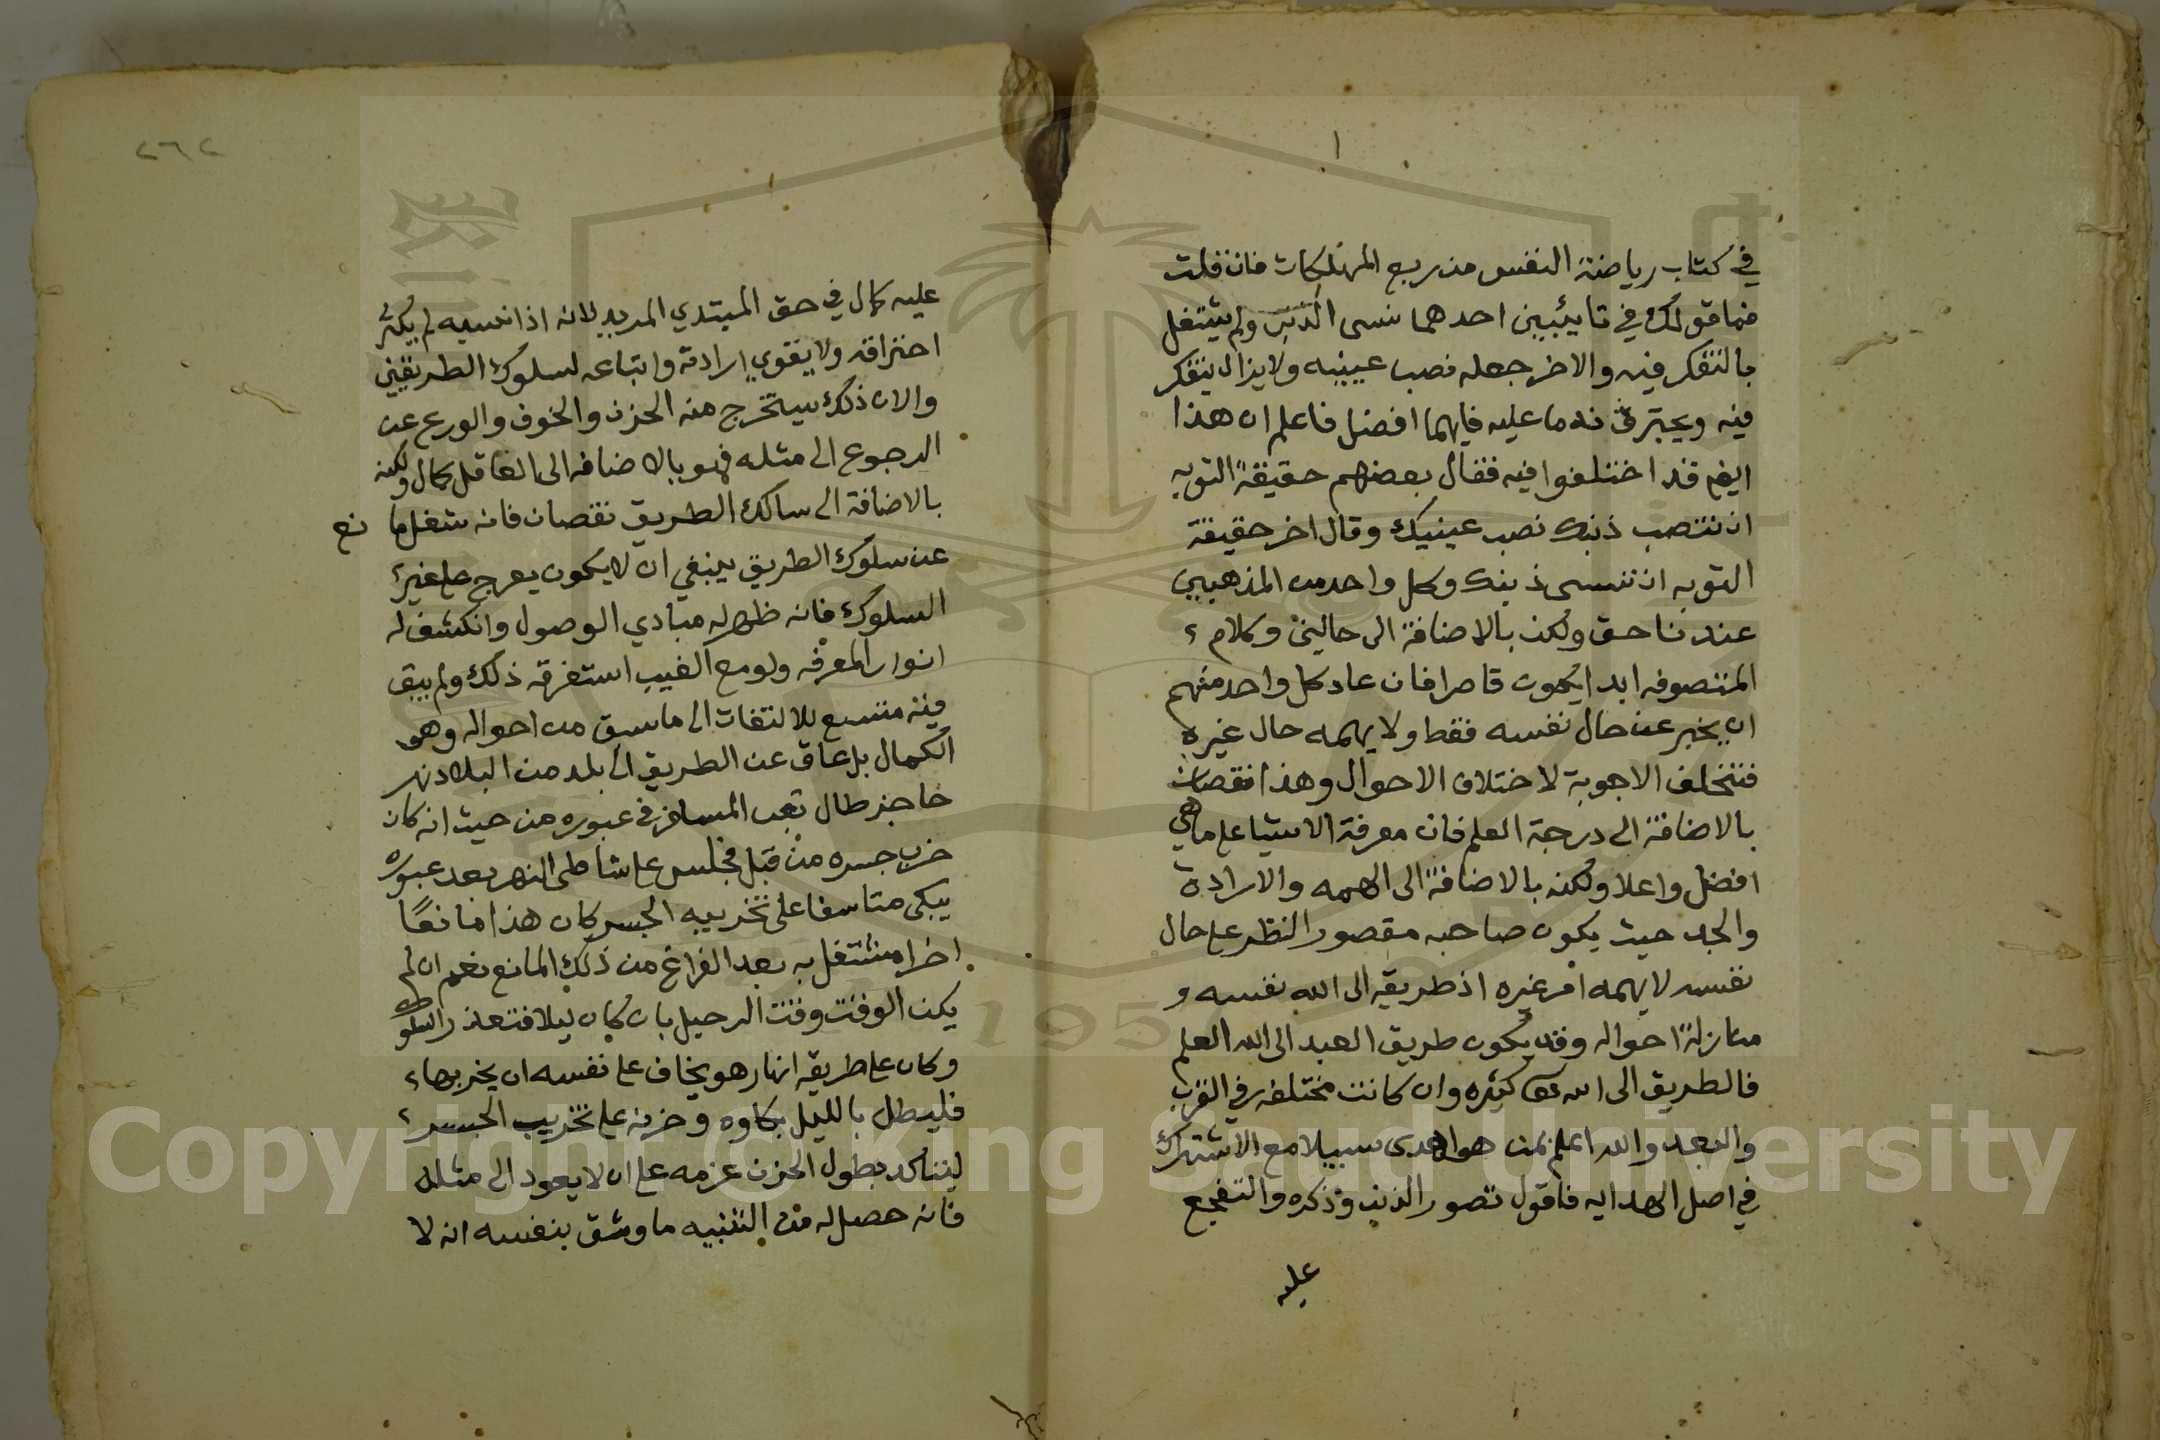 في كتاب رياضة النفس من ربع المهلكات فان قلت
فما قولك في تايبين احدهما نسى الذنب ولم يشتغل
بالتفكر فيه والاخر جعله نصب عينيه ولا يزال يتفكر
فيه ويحترق ندما عليه فايهما افضل فاعلم ان هذا
ايضا قد اختلفوا فيه فقال بعضهم حقيقة التوبه
ان تنصب ذنبك نصب عينيك وقال اخر حقيقة
التوبه ان تنسى ذنبك وكل واحد من المذهبين
عندنا حق ولكن بالاضافة الى حالين وكلام
المتصوفه ابدا يكون قاصرا فان عاد كل واحد منهم
ان يخبر عن حال نفسه فقط ولا يهمه حال غيره
فتختلف الاجوبة لاختلاف الاحوال وهذا نقصان
بالاضافة الى درجة العلم فان معرفة الاشيا على ما هي
افضل واعلا ولكنه بالاضافة الى الهمه والارادة
والجد حيث يكون صاحبه مقصور النظر على حال
نفسه لا يهمه امر غيره اذ طريقه الى الله نفسه و
منازلة احواله وقد يكون طريق العبد الى الله العلم
فالطريق الى الله كثيره وان كانت مختلفه في القرب
والبعد والله اعلم بمن هو اهدى سبيلا مع الاشتراك
في اصل الهدايه فاقول تصور الذنب وذكره والتفجع
عليه
٢٦٢
عليه كمال في حق المبتدي المريد لانه اذا نسيه لم يكثر
احتراقه ولا يقوي ارادته واتباعه لسلوك الطريقين
والان ذلك يستخرج منه الحزن والخوف والورع عن
الرجوع الى مثله فهو بالاضافه الى الغافل كمال ولكنه
بالاضافة الى سالك الطريق نقصان فانه شغل ما نع
عن سلوك الطريق ينبغي ان لا يكون يعرج على غير
السلوك فانه ظهر له مبادي الوصول وانكشف له
انوار المعرفه ولومع الغيب استغرقه ذلك ولم يبق
فيه متسع للالتفات الى ما سبق من احواله وهو
الكمال بل عاق عن الطريق الى بلد من البلاد نهر
حاجز طال تعب المسافر في عبوره من حيث انه كان
خرب جسره من قبل فجلس على شاطى النهر بعد عبوره
يبكي متاسفا على تخريبه الجسر كان هذا مانعا
اخرا مشتغل به بعد الفراغ من ذلك المانع نعم ان لم
يكن الوقت وقت الرحيل بان كان ليلا فتعذر السلوك
وكان على طريقه انهار هو يخاف على نفسه ان يخربها
فليطل بالليل بكاوه وحزنه على تخريب الجسر
ليتاكد بطول الحزن عزمه على ان لا يعود الى مثله
فانه حصل له من التنبيه ما وثق بنفسه انه لا
Copyright © King Saud University
1957